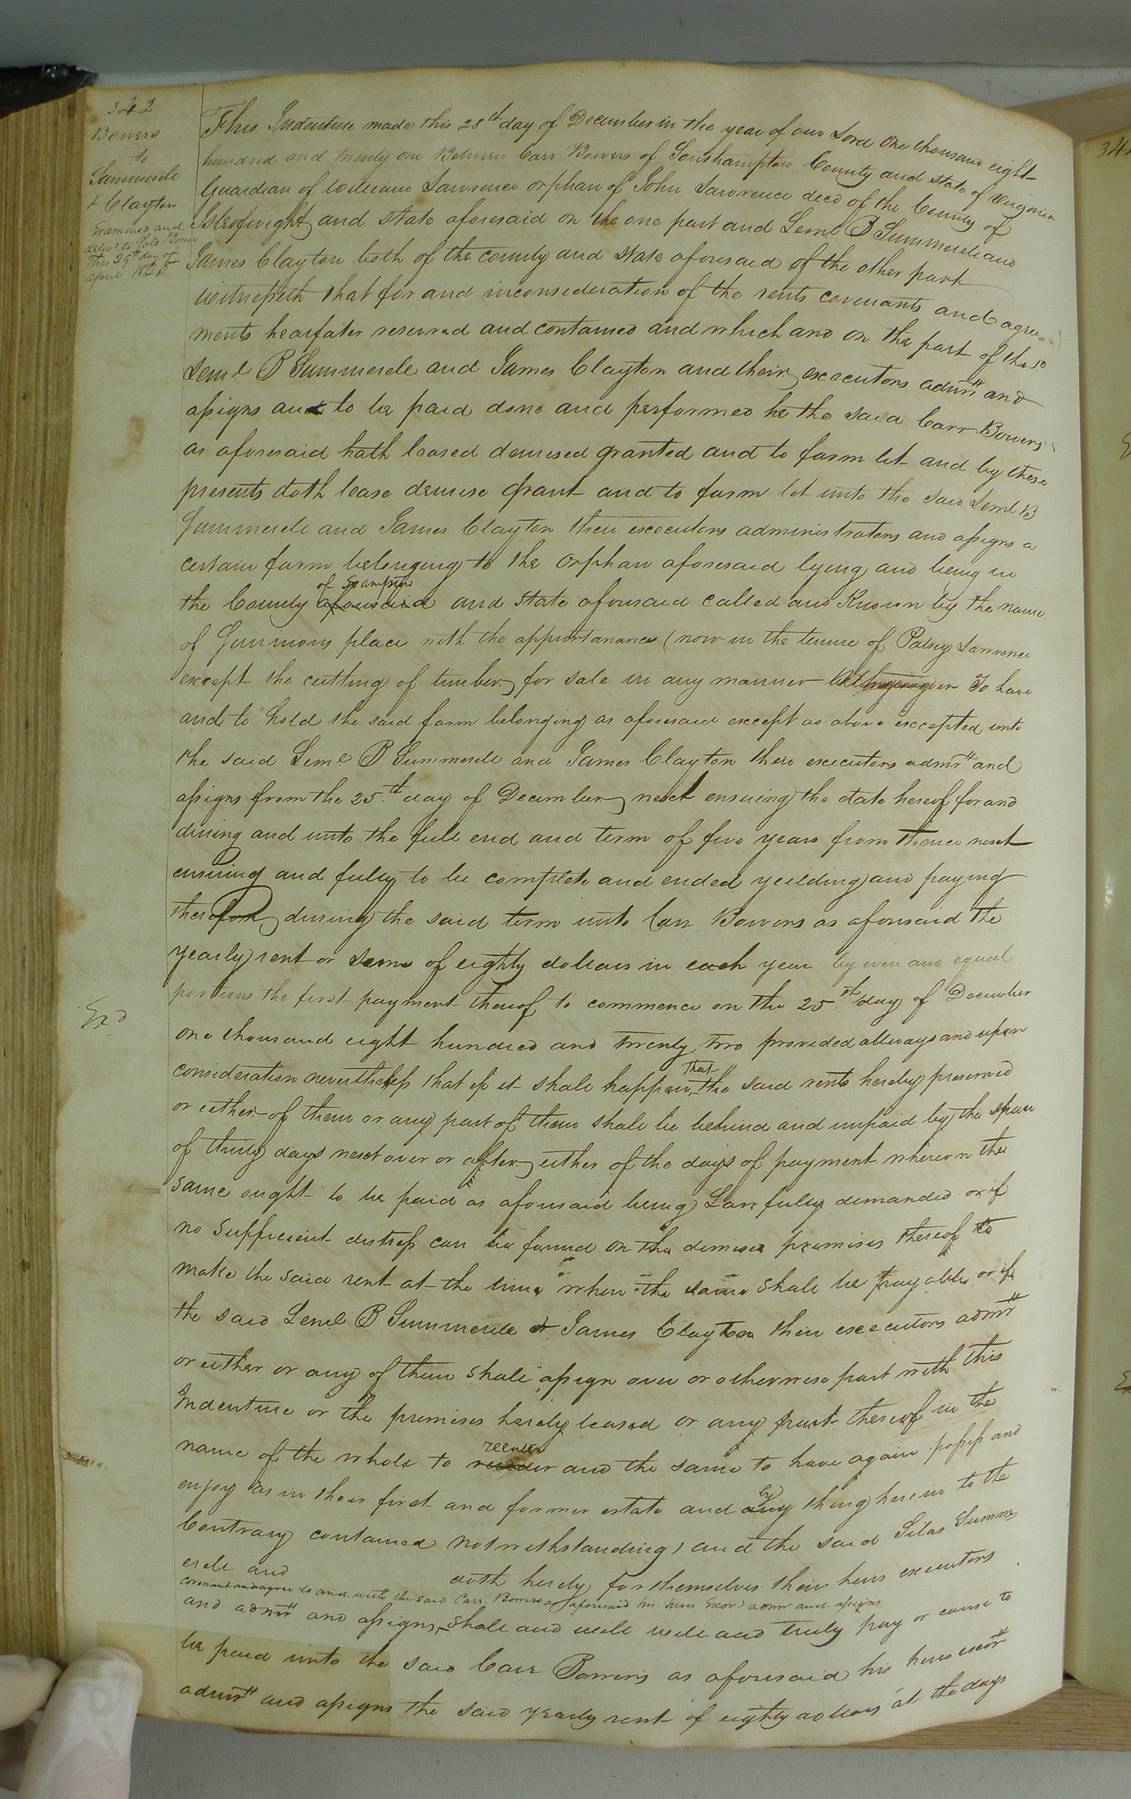 342
Bowers
to
Summerell
& Clayton
Examined and
this 25th day of
April
Exd
This Indenture made this 28th day of December in the year of our Lord One thousand eight
hundred and twenty one Between Carr Bowers of Southampton County and state of Virginia
Guardian of William Lawrence orphan of John Lawrence decd of the County of
Isleofwight and state aforesaid on the one part and Leml B Summerell and
James Clayton both of the county and state aforesaid of the other part
witnesseth that for and inconsideration of the rents covenants and agree
ments hearfater reserved and contained and which are on the part of the sd
Leml B Summerell and James Clayton and their executors admrs and
assigns and to be paid done and performed he the said Carr Bowers
as aforesaid hath leased demised granted and to farm let and by these
presents doth lease demise grant and to farm let unto the said Leml B
Summerell and James Clayton their executors administrators and assigns a
certain farm belonging to the Orphan aforesaid lying and being in
of Sampton
the County aforesaid and state aforesaid called and Known by the name
of place with the appurtanances (now in the tenure of Patsey Lawrence
except the cutting of timber for sale in any manner To have
and to hold the said farm belonging as aforesaid except as above excepted unto
the said Leml B Summerell and James Clayton there executors admrs and
assigns from the 25th day of December next ensuing the date hereof for and
during and unto the full end and term of five years from thence next
ensuing and fully to be complete and ended yeilding and paying
therefore during the said term unto Carr Bowers as aforesaid the
yearly rent or sum of eighty dollars in each year by even and equal
portions the first payment thereof to commence on the 25th day of December
one thousand eight hundred and twenty two provided allways and upon
that
consideration nevertheless that if it shall happen the said rents hereby preserved
or either of them or any part of them shall be behind and unpaid by the span
of thirty days next over or after either of the days of payment whereon the
same ought to be paid as aforesaid being Lawfully demanded or if
no sufficient distress can be found on the demised premises thereof to
make the said rent at the time when the same shall be payable or if
the said Leml B Summerell & James Clayton their executors admrs
or either or any of them shall assign over or otherwise part with this
Indenture or the premises hereby leased or any part thereof in the
reenter
name of the whole to and the same to have again possess and
enjoy as in their first and former estate and any thing herein to the
Contrary contained notwithstanding, and the said Silas Summ
erell and doth hereby for themselves their heirs executors
covenant and agree to and with the said Carr Bowers as aforesaid his heirs Exors admr and assigns
and admrs and assigns, shall and will well and truly pay or cause to
be paid unto the said Carr Bowers as aforesaid his heirs exors
admrs and assigns the said yearly rent of eighty dollars at the days